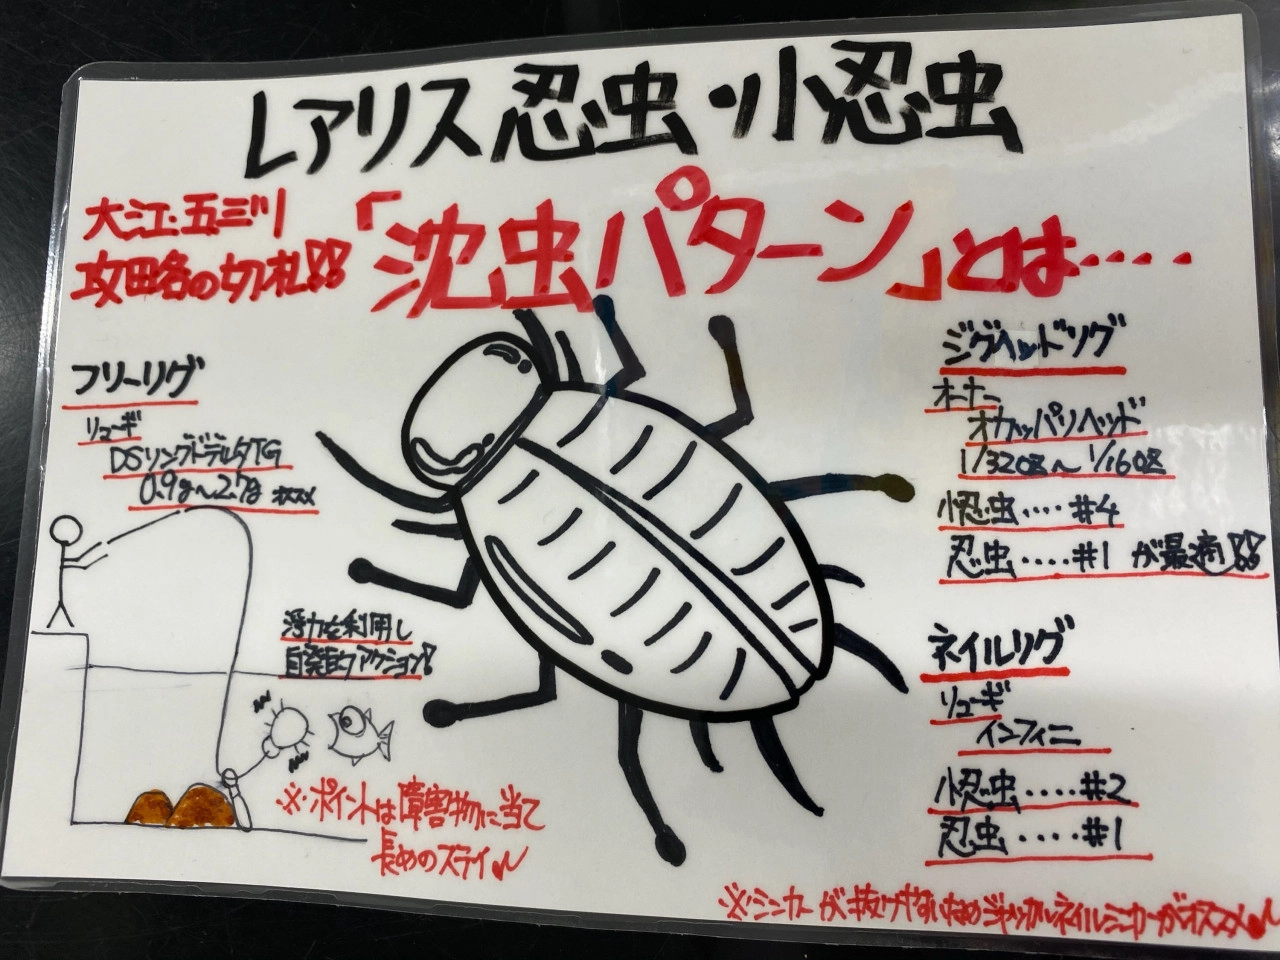 レアリス忍虫・小忍虫
大江・五三川
攻略の切札!!
「沈虫パターン」とは‥‥
フリーリグ
リューギ
DSリングドデルタTG
0.9g〜2.7g オススメ
浮力を利用し
自発的アクション!
※ポイントは障害物に当て
長めのステイ
ジグヘッドリグ
オーナー
オカッパリヘッド
1/32oz〜1/16oz
小忍虫‥‥#4
忍虫‥‥#1 が最適!!
ネイルリグ
リューギ
インフィニ
小忍虫‥‥#2
忍虫‥‥#1
※シンカーが抜けやすいためジャッカルネイルシンカーがオススメ